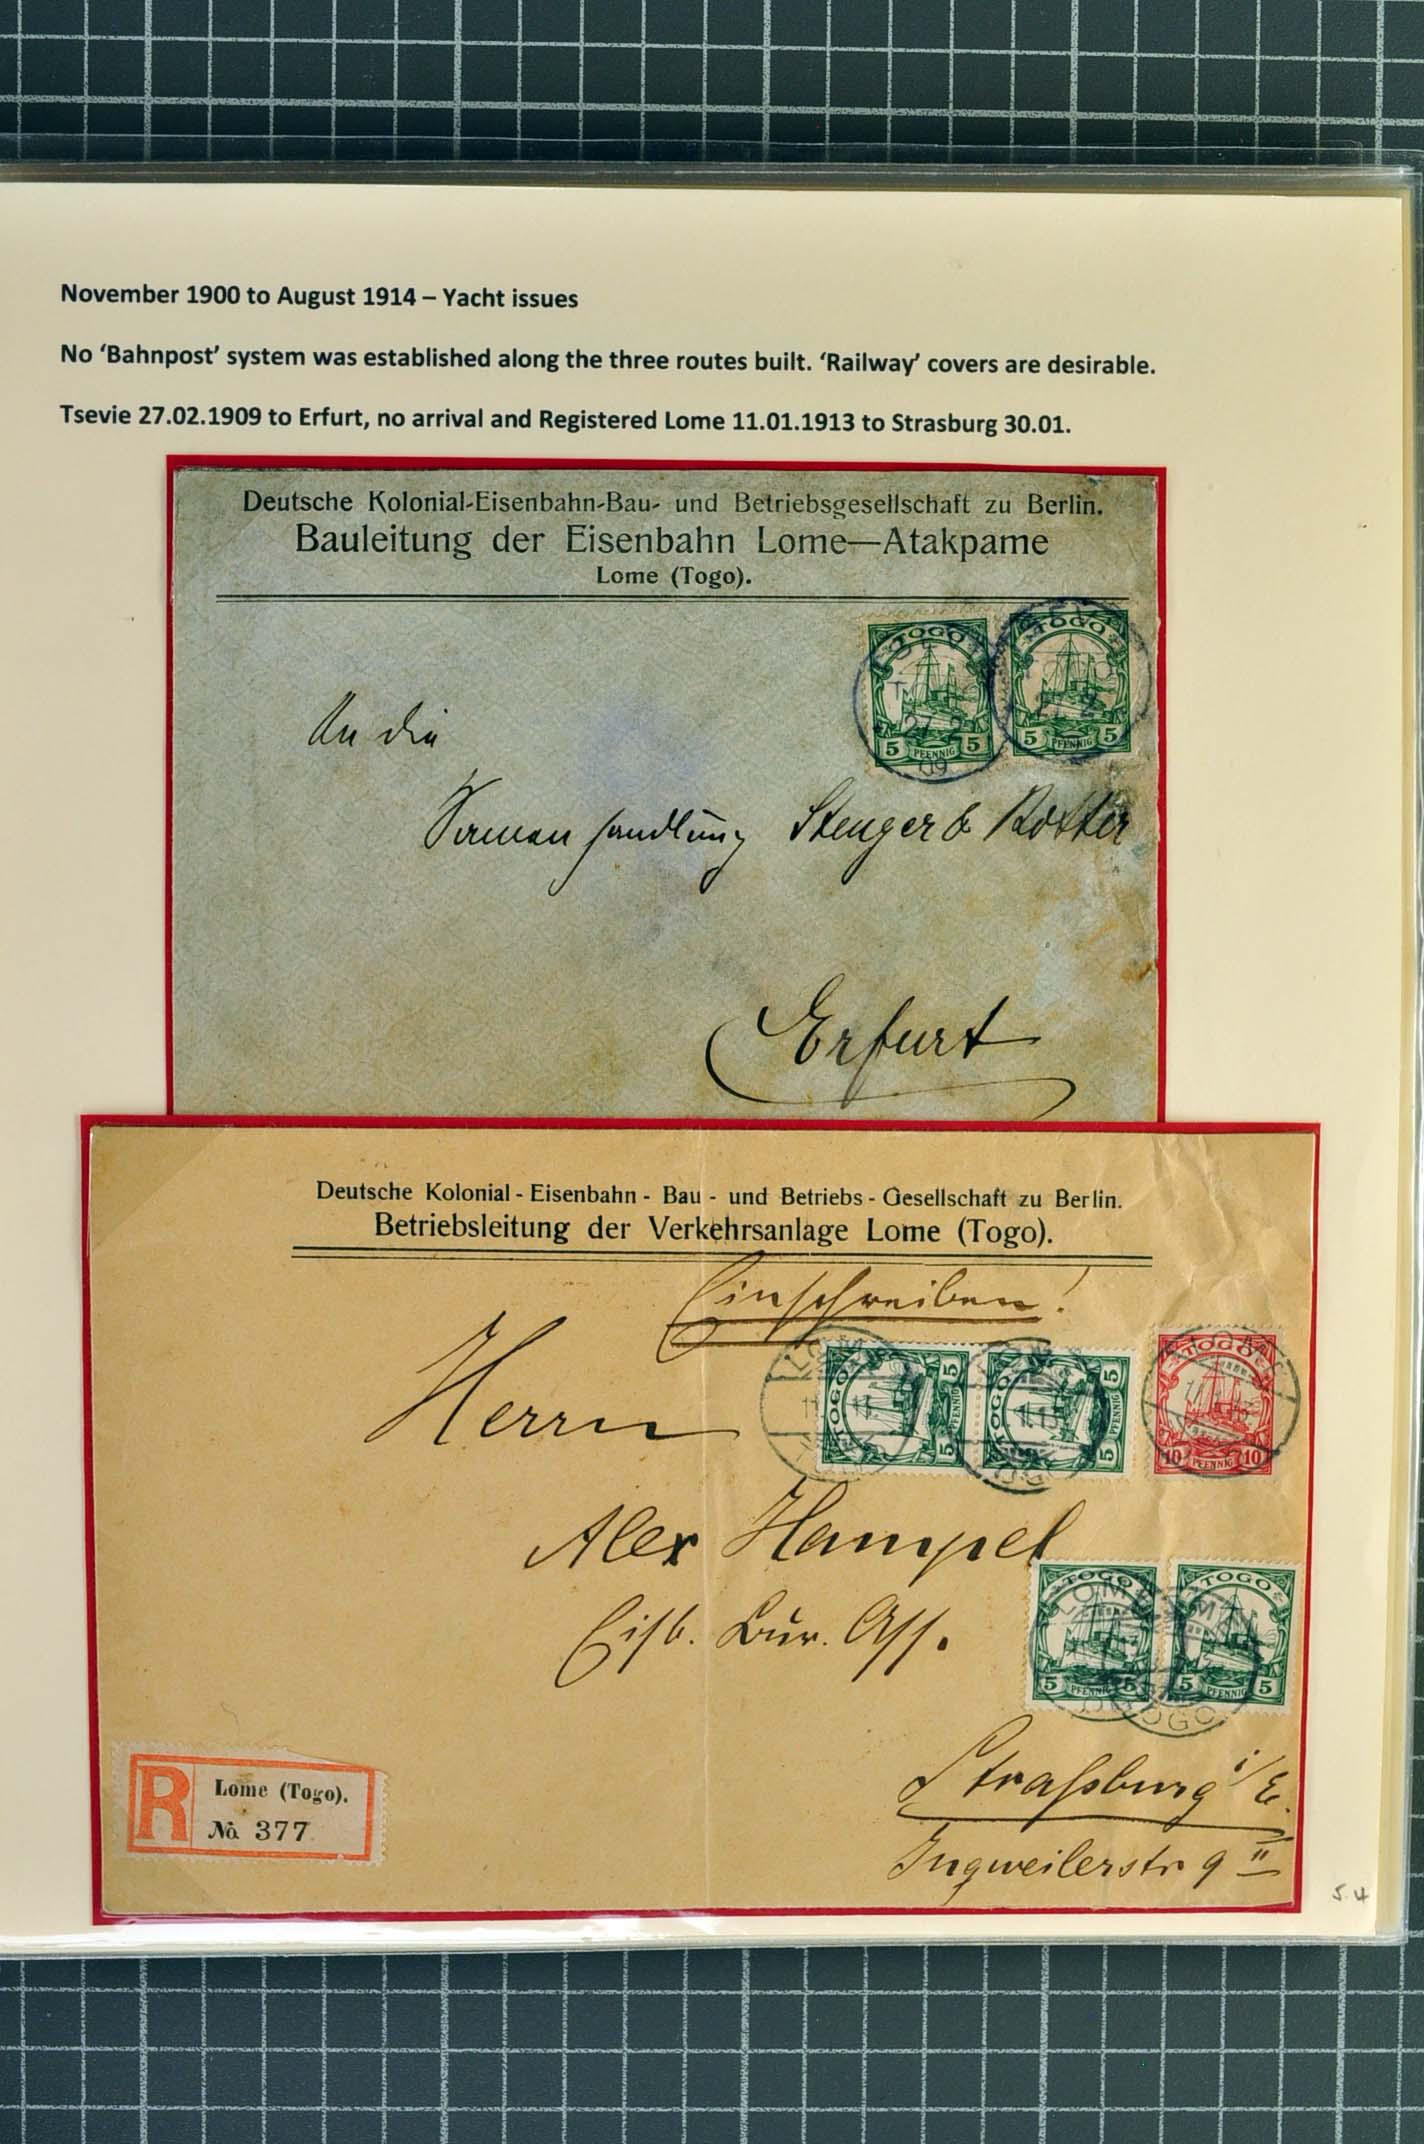 November 1900 to August 1914 – Yacht issues
No ‘Bahnpost’ system was established along the three routes built. ‘Railway’ covers are desirable.
Tsevie 27.02.1909 to Erfurt, no arrival and Registered Lome 11.01.1913 to Strasburg 30.01.
Deutsche Kolonial-Eisenbahn-Bau- und Betriebsgesellschaft zu Berlin.
Bauleitung der Eisenbahn Lome—Atakpame
Lome (Togo).
TOGO TOGO
27 2
09
5 PFENNIG 5 5 PFENNIG 5
An die
Samenhandlung Stenger & Rotter
Erfurt
Deutsche Kolonial - Eisenbahn - Bau - und Betriebs - Gesellschaft zu Berlin.
Betriebsleitung der Verkehrsanlage Lome (Togo).
Einschreiben!
TOGO 5 PFENNIG 5 TOGO 5 PFENNIG 5
TOGO
10 PFENNIG 10
Herrn
Alex Hampel
Eisb. Bür. Ass.
TOGO TOGO
LOME
5 PFENNIG 5 5 PFENNIG 5
TOGO
Straßburg i/E.
Ingweilerstr 9 II
R Lome (Togo).
No. 377
5.4